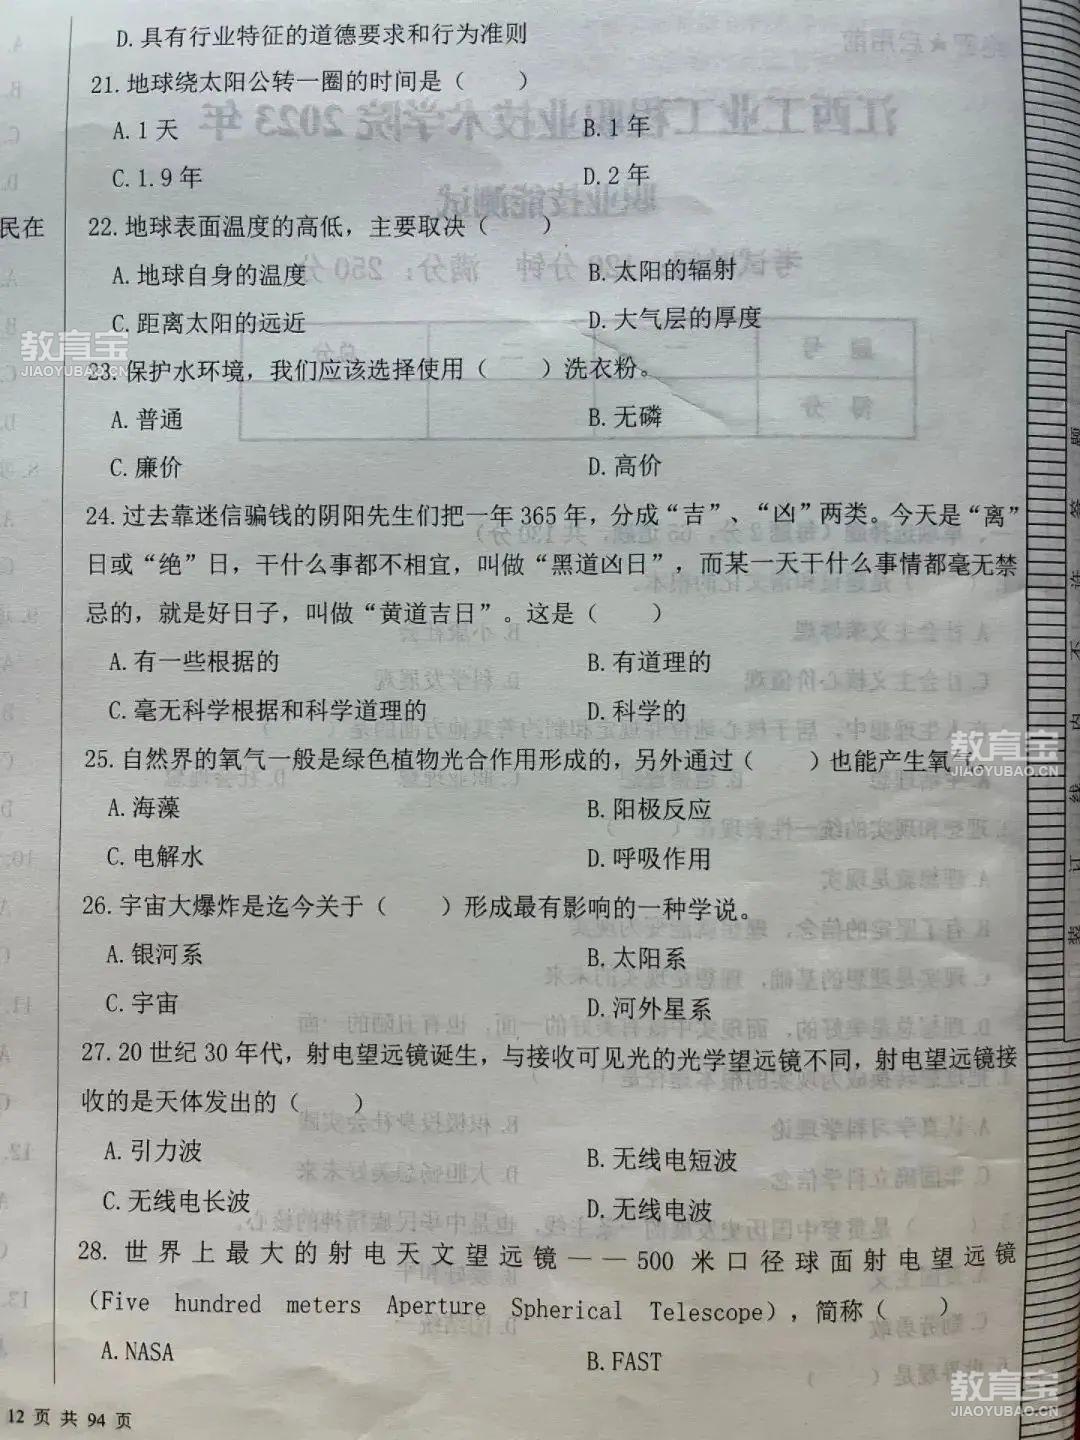 D.具有行业特征的道德要求和行为准则
21.地球绕太阳公转一圈的时间是（　　）
A.1天　B.1年
C.1.9年　D.2年
民在
22.地球表面温度的高低，主要取决（　　）
A.地球自身的温度　B.太阳的辐射
C.距离太阳的远近　D.大气层的厚度
教育宝
JIAOYUBAO.CN
23.保护水环境，我们应该选择使用（　　）洗衣粉。
A.普通　B.无磷
C.廉价　D.高价
24.过去靠迷信骗钱的阴阳先生们把一年365年，分成“吉”、“凶”两类。今天是“离”
日或“绝”日，干什么事都不相宜，叫做“黑道凶日”，而某一天干什么事情都毫无禁
忌的，就是好日子，叫做“黄道吉日”。这是（　　）
A.有一些根据的　B.有道理的
C.毫无科学根据和科学道理的　D.科学的
25.自然界的氧气一般是绿色植物光合作用形成的，另外通过（　　）也能产生氧
教育宝
JIAOYUBAO.CN
A.海藻　B.阳极反应
C.电解水　D.呼吸作用
26.宇宙大爆炸是迄今关于（　　）形成最有影响的一种学说。
A.银河系　B.太阳系
C.宇宙　D.河外星系
27.20世纪30年代，射电望远镜诞生，与接收可见光的光学望远镜不同，射电望远镜接
收的是天体发出的（　　）
A.引力波　B.无线电短波
C.无线电长波　D.无线电波
28.世界上最大的射电天文望远镜——500米口径球面射电望远镜
（Five hundred meters Aperture Spherical Telescope），简称（　　）
A.NASA　B.FAST
教育宝
JIAOYUBAO.CN
12页共94页
题
答
许
不
内
线
订
装